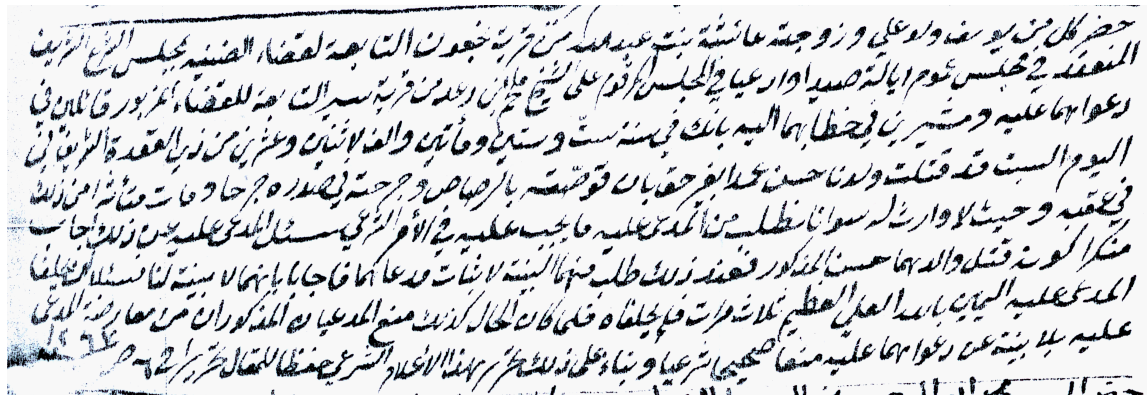 حضر كل من يوسف ولد علي وزوجته عائشة بنت عبد الله من قرية التابعة لقضاء الضنيه بمجلس الشرع الشريف
المنعقد في مجلس عموم ايالة صيدا وادعيا في المجلس المرقوم على الشيخ ملحم بن رعد من قرية سير التابعة للقضاء المزبور قائلين في
دعواهما عليه ومشيرين في خطابهما اليه بانك في سنة ست وستين ومأتين والف لاثنين وعشرين من ذي القعدة الشريفة في
اليوم السبت قد قتلت ولدنا حسن عمدا بغير حق بان قوصته بالرصاص وجرحته في صدره جرحا ومات متأثرا من ذلك
في عقبه وحيث لا وارث له سوانا نطلب من المدعى عليه ما يجب عليه في الأمر الشرعي سئل المدعى عليه عن ذلك اجاب
منكرا لكونه قتل والدهما حسن المذكور فعند ذلك طلب منهما البينة لاثبات مدعاهما فاجابا بانهما لا بينة لنا نسئلك تحليف
المدعى عليه اليمين بالله العلي العظيم ثلاث مرات فلم يحلفاه فلما كان الحال كذلك منع المدعيان المذكوران من معارضة المدعى
عليه بلا بينة عن دعواهما عليه منعا صحيحا شرعيا وبناء على ذلك حرر بهذا الاعلام الشرعي حفظا للمقال تحريرا في